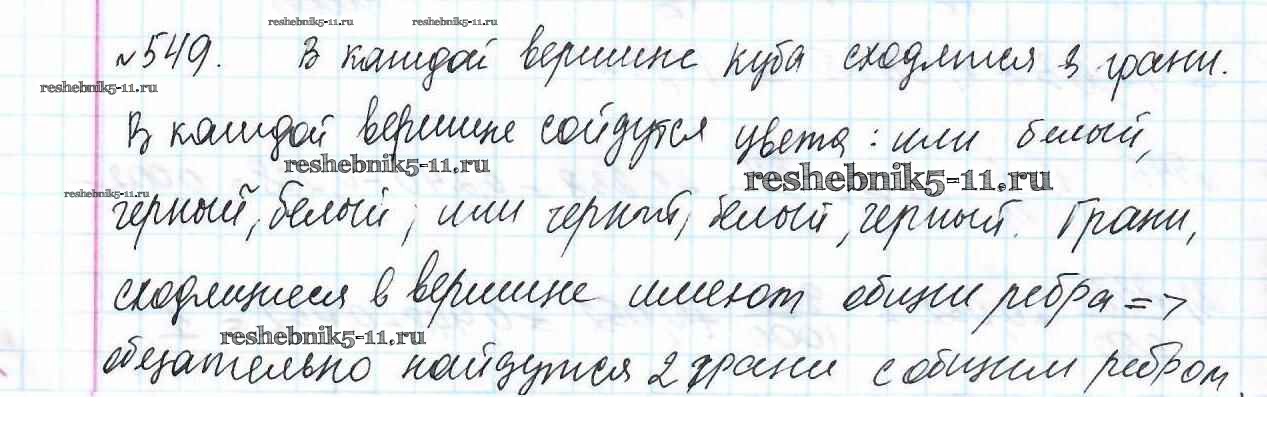 reshebnik5-11.ru reshebnik5-11.ru
№549. В каждой вершине куба сходятся 3 грани.
reshebnik5-11.ru
В каждой вершине сойдутся цвета: или белый,
reshebnik5-11.ru reshebnik5-11.ru
reshebnik5-11.ru
черный, белый, или черный, белый, черный. Грани,
сходящиеся в вершине имеют общии ребра =>
reshebnik5-11.ru
обязательно найдутся 2 грани с общим ребром.